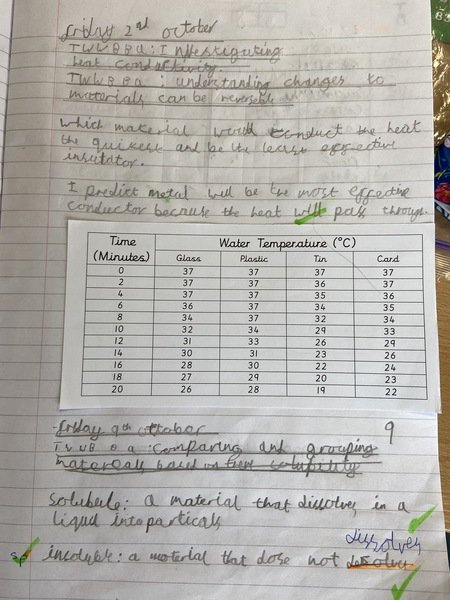 Friday 2nd October
TWWBBa: Investiguting
heat conductivity.
TWWBBa: understanding changes to
materials can be reversable
Which material would conduct the heat
the quikest and be the least effective
insulator.
I predict metal will be the most effective
conductor because the heat will pass through.
Time (Minutes) Water Temperature (°C)
Glass Plastic Tin Card
0 37 37 37 37
2 37 37 36 37
4 37 37 35 36
6 36 37 34 35
8 34 37 32 34
10 32 34 29 33
12 31 33 26 29
14 30 31 23 26
16 28 30 22 24
18 27 29 20 23
20 26 28 19 22
Friday 9th October 9
comparing and grouping
materials based on their solubility
soluble: a material that dissolves in a
liquid into particals
dissolves
sp insoluble: a material that dose not